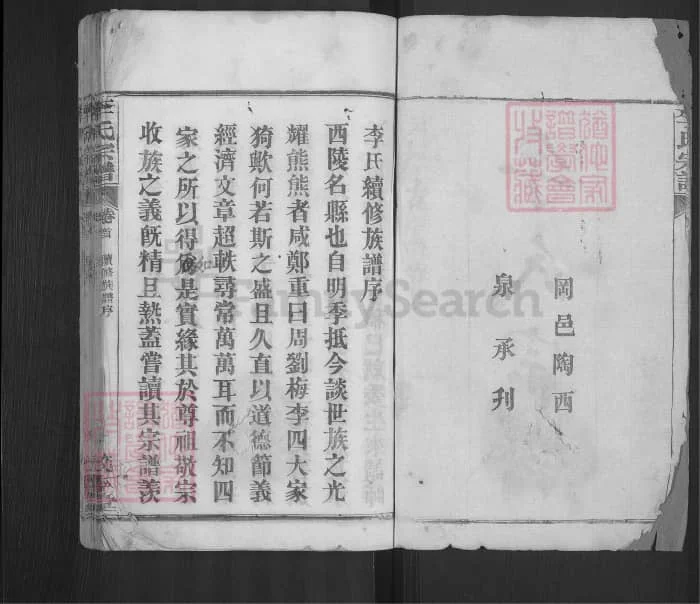 岡邑陶西
泉承刊
李氏續修族譜序
西陵名縣也自明季抵今談世族之光
耀熊熊者咸鄭重曰周劉梅李四大家
猗歟何若斯之盛且久直以道德節義
經濟文章超軼尋常萬萬耳而不知四
家之所以得後是實緣其於尊祖敬宗
收族之義既精且熱蓋嘗讀其宗譜羨
氏宗譜
卷首
續修族譜序
氏宗譜
FamilySearch